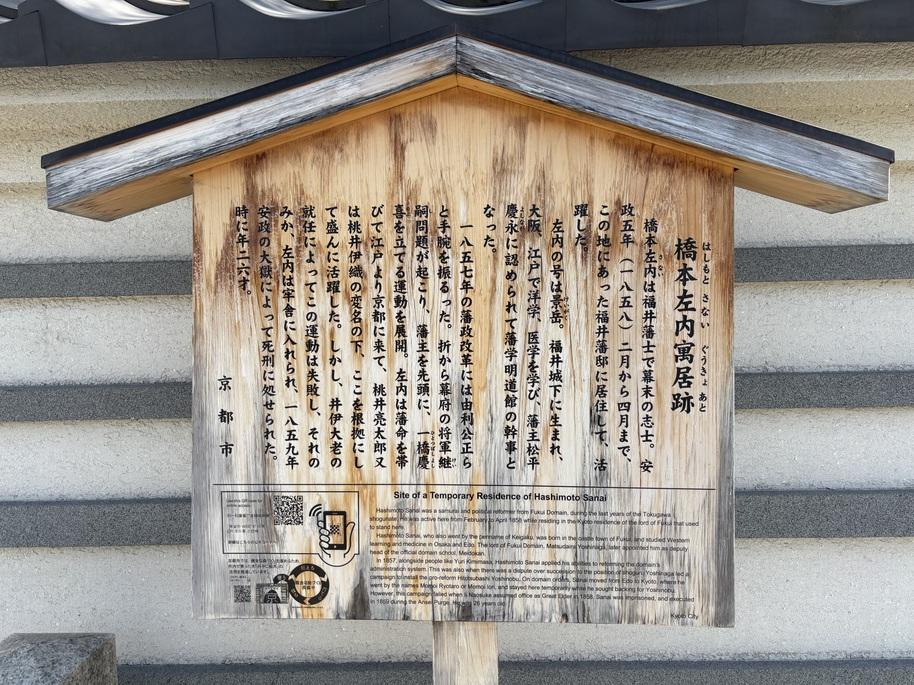 橋本左内寓居跡
はしもと さない ぐうきょ あと
橋本左内は福井藩士で幕末の志士。安
政五年（一八五八）二月から四月まで、
この地にあった福井藩邸に居住して、活
躍した。
左内の号は景岳。福井城下に生まれ、
大阪、江戸で洋学、医学を学び、藩主松平
慶永に認められて藩学明道館の幹事と
なった。
一八五七年の藩政改革には由利公正ら
と手腕を振るった。折から幕府の将軍継
嗣問題が起こり、藩主を先頭に、一橋慶
喜を立てる運動を展開。左内は藩命を帯
びて江戸より京都に来て、桃井亮太郎又
は桃井伊織の変名の下、ここを根拠にし
て盛んに活躍した。しかし、井伊大老の
就任によってこの運動は失敗し、それの
みか、左内は牢舎に入れられ、一八五九年
安政の大獄によって死刑に処せられた。
時に年二六才。
京都市
Site of a Temporary Residence of Hashimoto Sanai
Hashimoto Sanai was a samurai and political reformer from Fukui Domain, during the last years of the Tokugawa
shogunate. He was active here from February to April 1858 while residing in the Kyoto residence of the lord of Fukui that used
to stand here.
Hashimoto Sanai, who also went by the penname of Keigaku, was born in the castle town of Fukui, and studied Western
learning and medicine in Osaka and Edo. The lord of Fukui Domain, Matsudaira Yoshinaga, later appointed him as deputy
head of the official domain school, Meidokan.
In 1857, alongside people like Yuri Kimimasa, Hashimoto Sanai applied his abilities to reforming the domain's
administration system. This was also when there was a dispute over succession to the position of shogun. Yoshinaga led a
campaign to install the pro-reform Hitotsubashi Yoshinobu. On domain orders, Sanai moved from Edo to Kyoto, where he
went by the names Momoi Ryotaro or Momoi Iori, and stayed here temporarily while he sought backing for Yoshinobu.
However, this campaign failed when Ii Naosuke assumed office as Great Elder in 1858. Sanai was imprisoned, and executed
in 1859 during the Ansei Purge. He was 26 years old.
Kyoto City